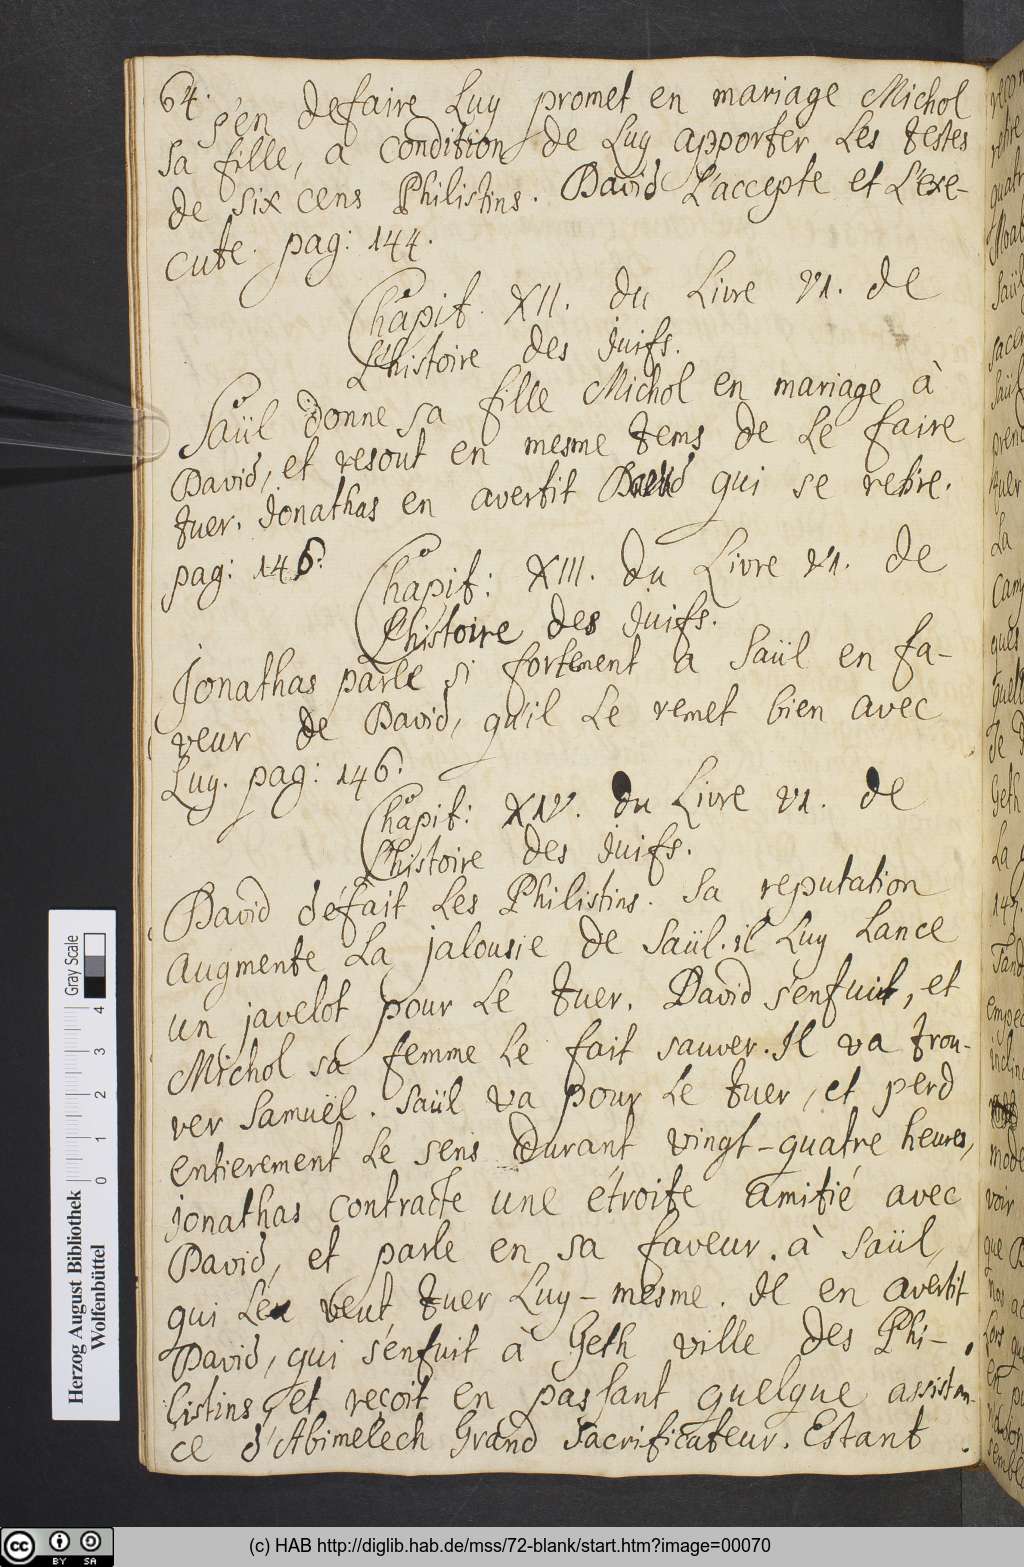 64.
s'en defaire Luy promet en mariage Michol
sa fille, a condition de Luy apporter Les testes
de six cens Philistins. David L'accepte et L'exe-
cute. pag: 144.
Chapit. XII. du Livre VI. de
L'histoire des Juifs.
Saül donne sa fille Michol en mariage à
David, et resout en mesme tems de Le faire
tuer. Jonathas en avertit David qui se retire.
pag: 146.
Chapit: XIII. du Livre VI. de
L'histoire des Juifs.
Jonathas parle si fortement a Saül en fa-
veur de David, qu'il Le remet bien avec
Luy. pag: 146.
Chapit: XIV. du Livre VI. de
L'histoire des Juifs.
David défait Les Philistins. Sa reputation
augmente La jalousie de Saül. il Luy Lance
un javelot pour Le tuer. David s'enfuit, et
Michol sa femme Le fait sauver. Il va trou-
ver Samuël. Saül va pour Le tuer, et perd
entierement Le sens durant vingt-quatre heures,
Jonathas contracte une étroite amitié avec
David, et parle en sa faveur. à Saül,
qui Le veut tuer Luy-mesme. Il en avertit
David, qui s'enfuit à Geth ville des Phi-
listins, et reçoit en passant quelque assistan-
ce d'Abimelech Grand Sacrificateur. Estant
Gray Scale
0 1 2 3 4
Herzog August Bibliothek
Wolfenbüttel
cc BY SA
(c) HAB http://diglib.hab.de/mss/72-blank/start.htm?image=00070